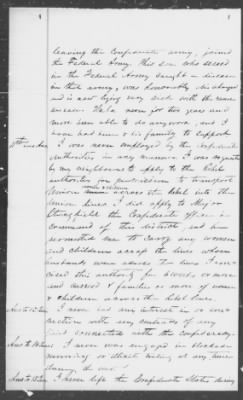 leaving the Confederate army, joined
the Federal Army. This son who served
in the Federal Army caught a disease
in that army, was honorably discharged
and is now lying very sick with the same
disease. Has been for two years and
never been able to do any work, and I
have had him & his family to support
I was never employed by the Confederate
Authorities in any manner. I was requested
by my neighbours to apply to the Rebel
authorities for permission to transport
Union across the Rebel into the
Union lines. I did apply to Major
the Confederate officer in
command of this district, and he
me to carry any women
and children across the lines whose
husbands were across the lines. I
this authority for weeks or more
and carried families or more of women
& children across the Rebel lines.
Ans to I never had any interest in or
with any of any
kind connected with the confederacy.
Ans to I never was engaged in blockade
running or illicit trading at any time
during the war.
Ans to I never left the Confederate States during